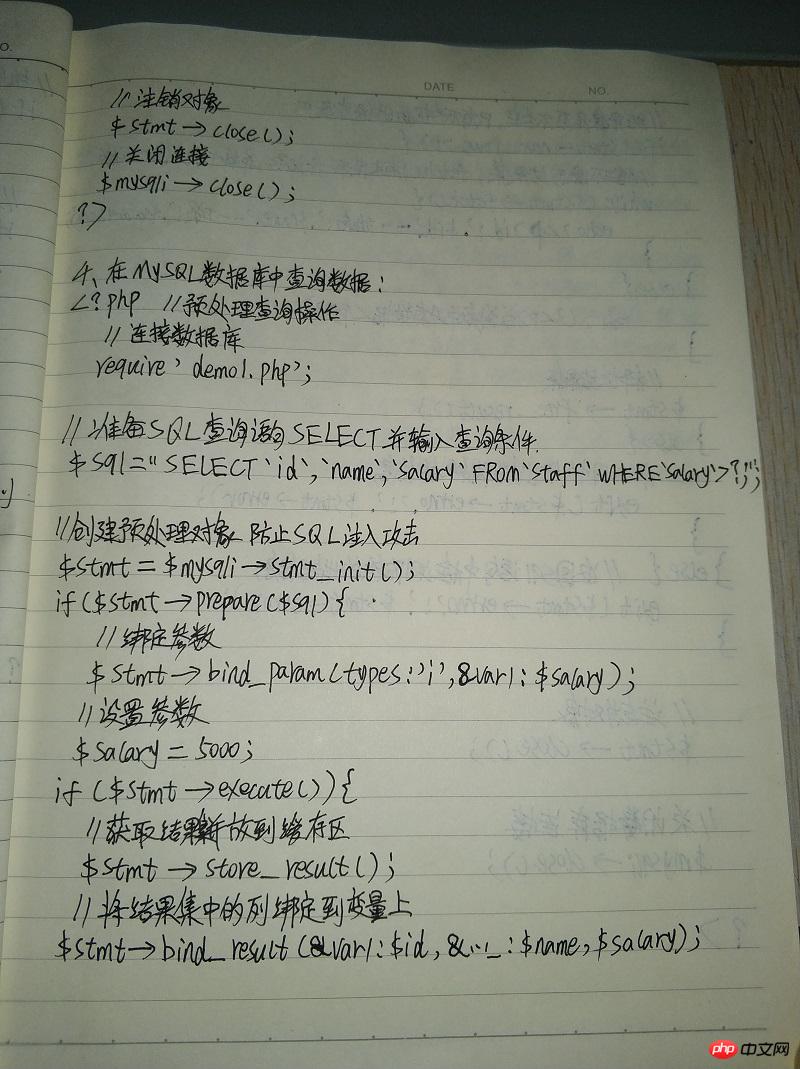 DATE
NO.
//注销对象
$stmt→close();
//关闭连接
$mysqli→close();
?>
4、在MySQL数据库中查询数据:
<?php //预处理查询操作
//连接数据库
require 'demo1.php';
//准备SQL查询语句SELECT并输入查询条件.
$sql="SELECT`id`,`name`,`salary` FROM`staff` WHERE`salary`>?;";
//创建预处理对象 防止SQL注入攻击
$stmt=$mysqli→stmt_init();
if($stmt→prepare($sql){
//绑定参数
$stmt→bind_param(types:'i',&var1:$salary);
//设置参数
$salary=5000;
if($stmt→execute()){
//获取结果并放到缓存区
$stmt→store_result();
//将结果集中的列绑定到变量上
$stmt→bind_result(&var1:$id,&..._:$name,$salary);
php中文网